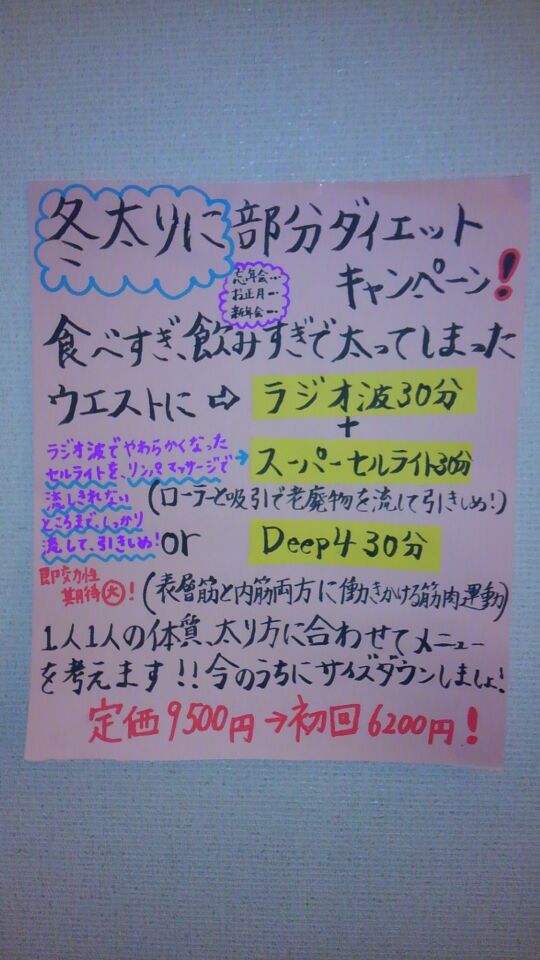 冬太りに部分ダイエット
キャンペーン!
忘年会…
お正月…
新年会…
食べすぎ、飲みすぎで太ってしまった
ウエストに⇨ラジオ波30分
+
ラジオ波でやわらかくなった
セルライトを、リンパマッサージで
流しきれない
ところまで、しっかり
流して、引きしめ!
→スーパーセルライト30分
(ローラーと吸引で老廃物を流して引きしめ!)
or Deep4 30分
即効性
期待大!
(表層筋と内筋両方に働きかける筋肉運動)
1人1人の体質、太り方に合わせてメニュー
を考えます!!今のうちにサイズダウンしましょ!
定価9500円→初回6200円!